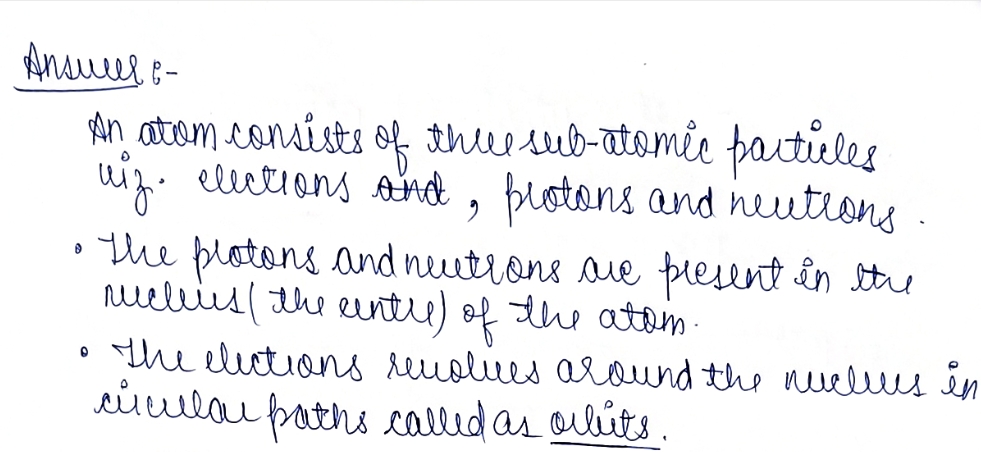 Answer :-
An atom consists of three sub-atomic particles
viz. electrons and , protons and neutrons .
• The protons and neutrons are present in the
nucleus ( the centre) of the atom.
• The electrons revolves around the nucleus in
circular paths called as orbits .